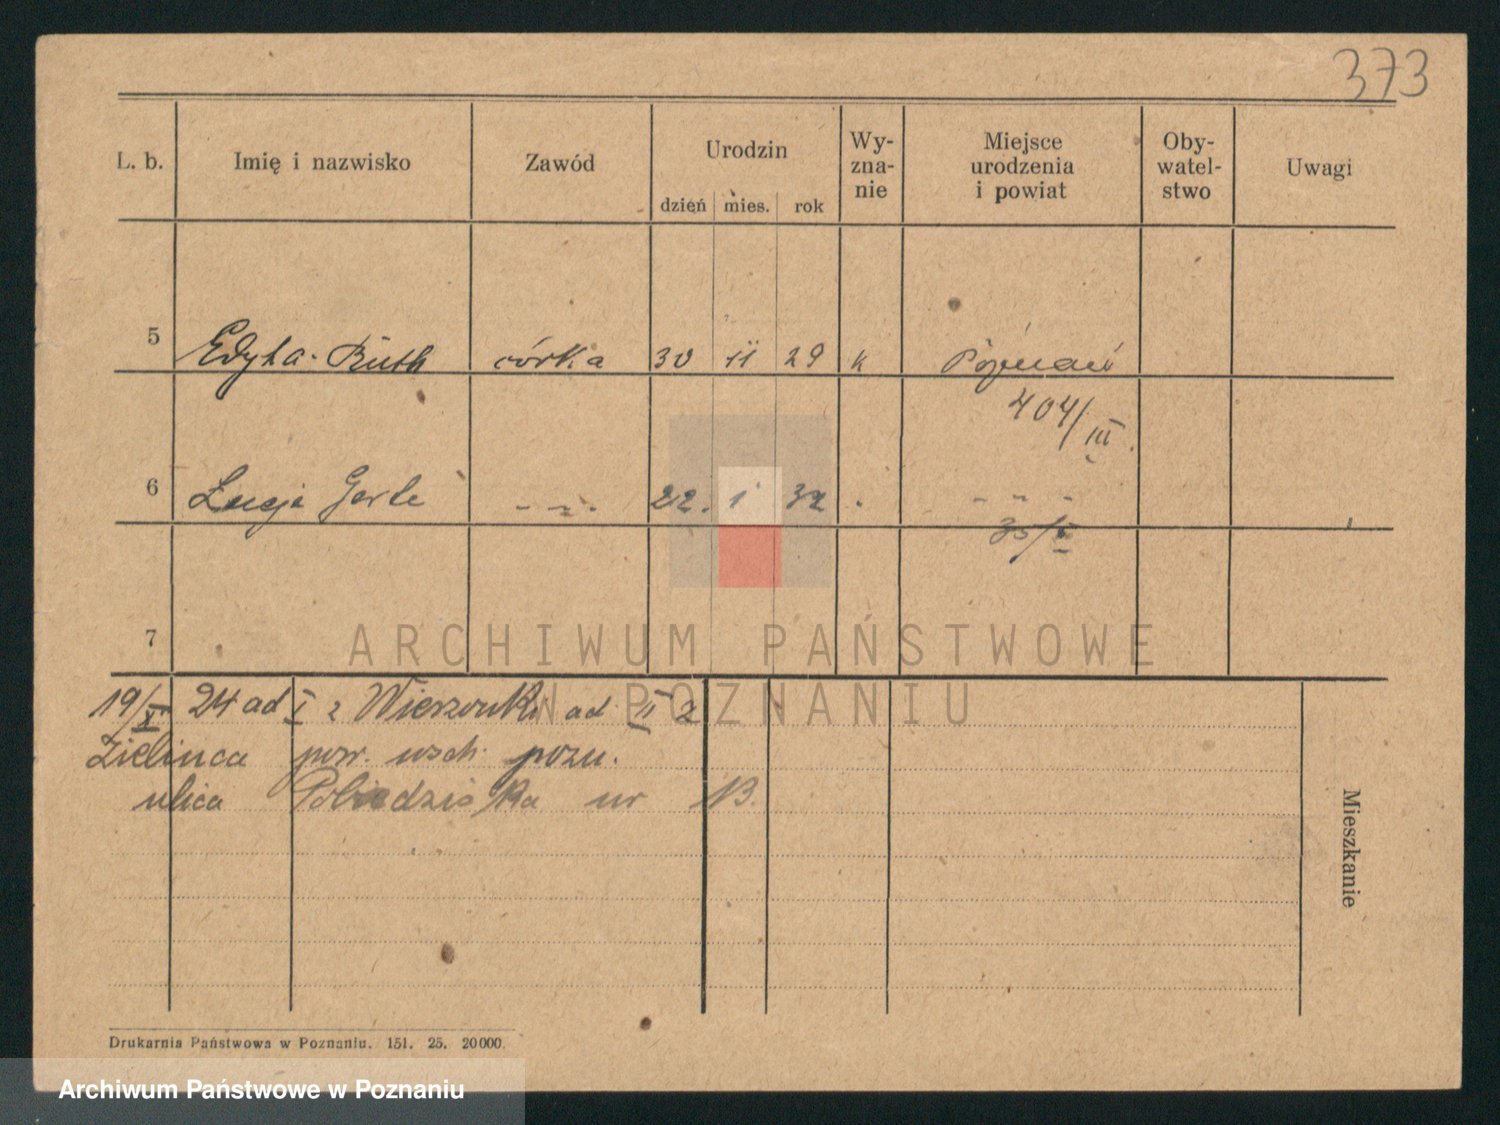 373
L. b. Imię i nazwisko Zawód Urodzin Wy-zna-nie Miejsce urodzenia i powiat Oby-watel-stwo Uwagi
dzień mies. rok
5 Edyta-Ruth córka 30 11 29 k Poznań
404/III
6 Łucja Gerte - „ - 22. 1 32 - „ -
35/I
7
ARCHIWUM PAŃSTWOWE
W POZNANIU
19/X 24 ad I z Wierzonki ad II z
Zielińca pow. wsch. pozn.
ulica Pobiedziska nr 13.
Mieszkanie
Drukarnia Państwowa w Poznaniu. 151. 25. 20000.
Archiwum Państwowe w Poznaniu